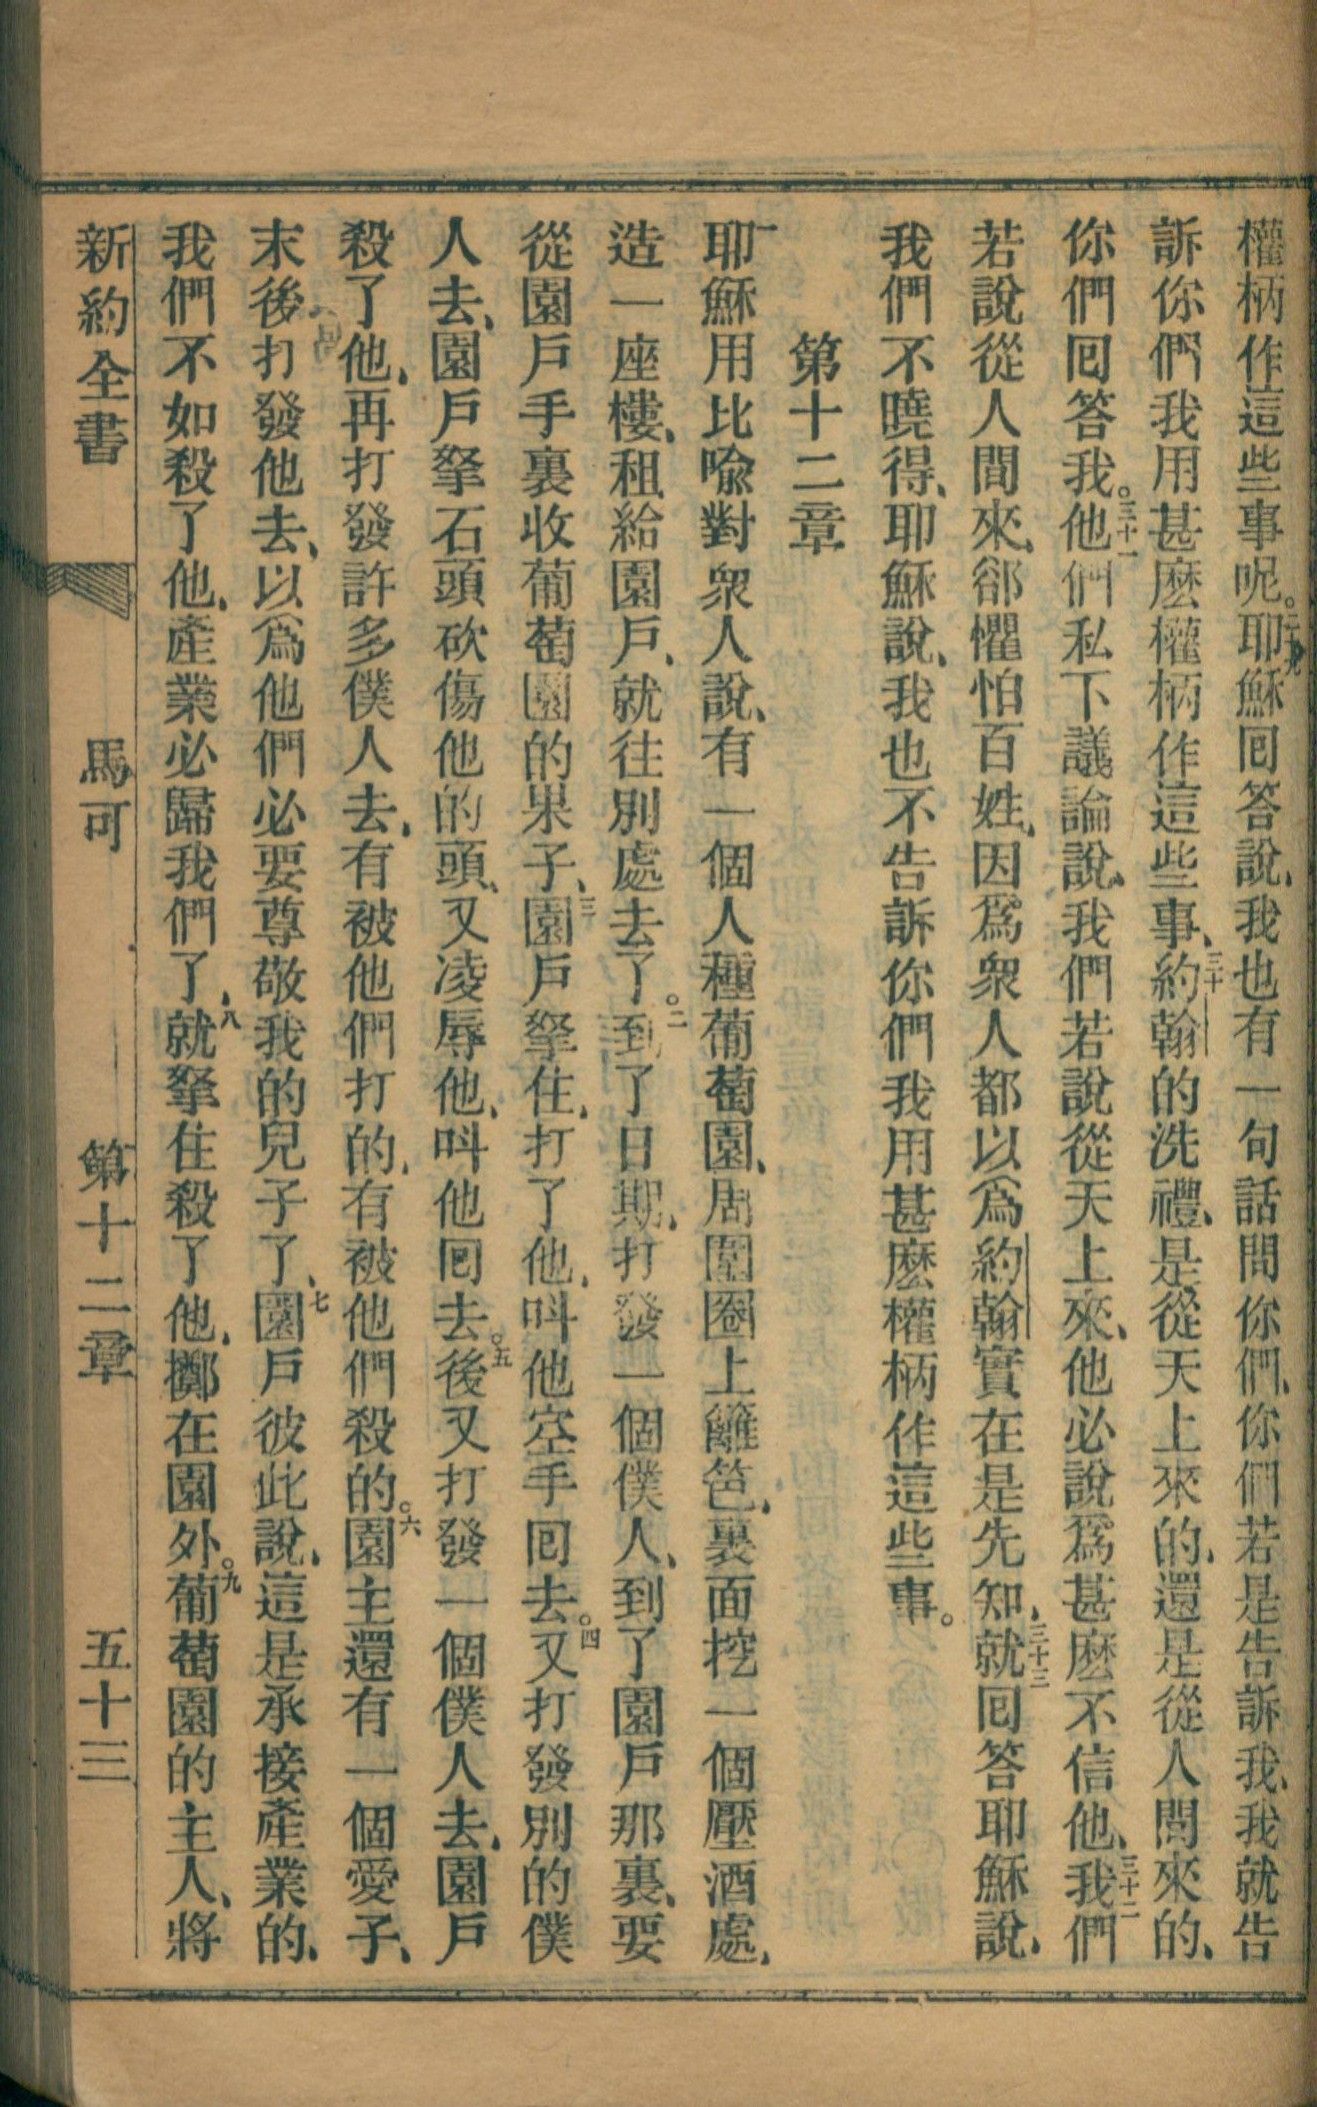 權柄作這些事呢。二十九耶穌囘答說、我也有一句話問你們、你們若是告訴我、我就告
訴你們我用甚麽權柄作這些事、三十約翰的洗禮、是從天上來的、還是從人間來的、
你們囘答我。三十一他們私下議論說、我們若說從天上來、他必說爲甚麽不信他、三十二我們
若說從人間來、卻懼怕百姓、因爲衆人都以爲約翰實在是先知、三十三就囘答耶穌說、
我們不曉得、耶穌說、我也不告訴你們我用甚麽權柄作這些事。
第十二章
一耶穌用比喩對衆人說、有一個人種葡萄園、周圍圈上籬笆、裏面挖一個壓酒處、
造一座樓、租給園戶、就往別處去了。二到了日期、打發一個僕人、到了園戶那裏、要
從園戶手裏收葡萄園的果子、三園戶拏住、打了他、呌他空手囘去。四又打發別的僕
人去、園戶拏石頭砍傷他的頭、又凌辱他、呌他囘去。五後又打發一個僕人去、園戶
殺了他、再打發許多僕人去、有被他們打的、有被他們殺的。六園主還有一個愛子、
末後打發他去、以爲他們必要尊敬我的兒子了、七園戶彼此說、這是承接產業的、
我們不如殺了他、產業必歸我們了、八就拏住殺了他、擲在園外。九葡萄園的主人、將
新約全書 馬可 第十二章 五十三